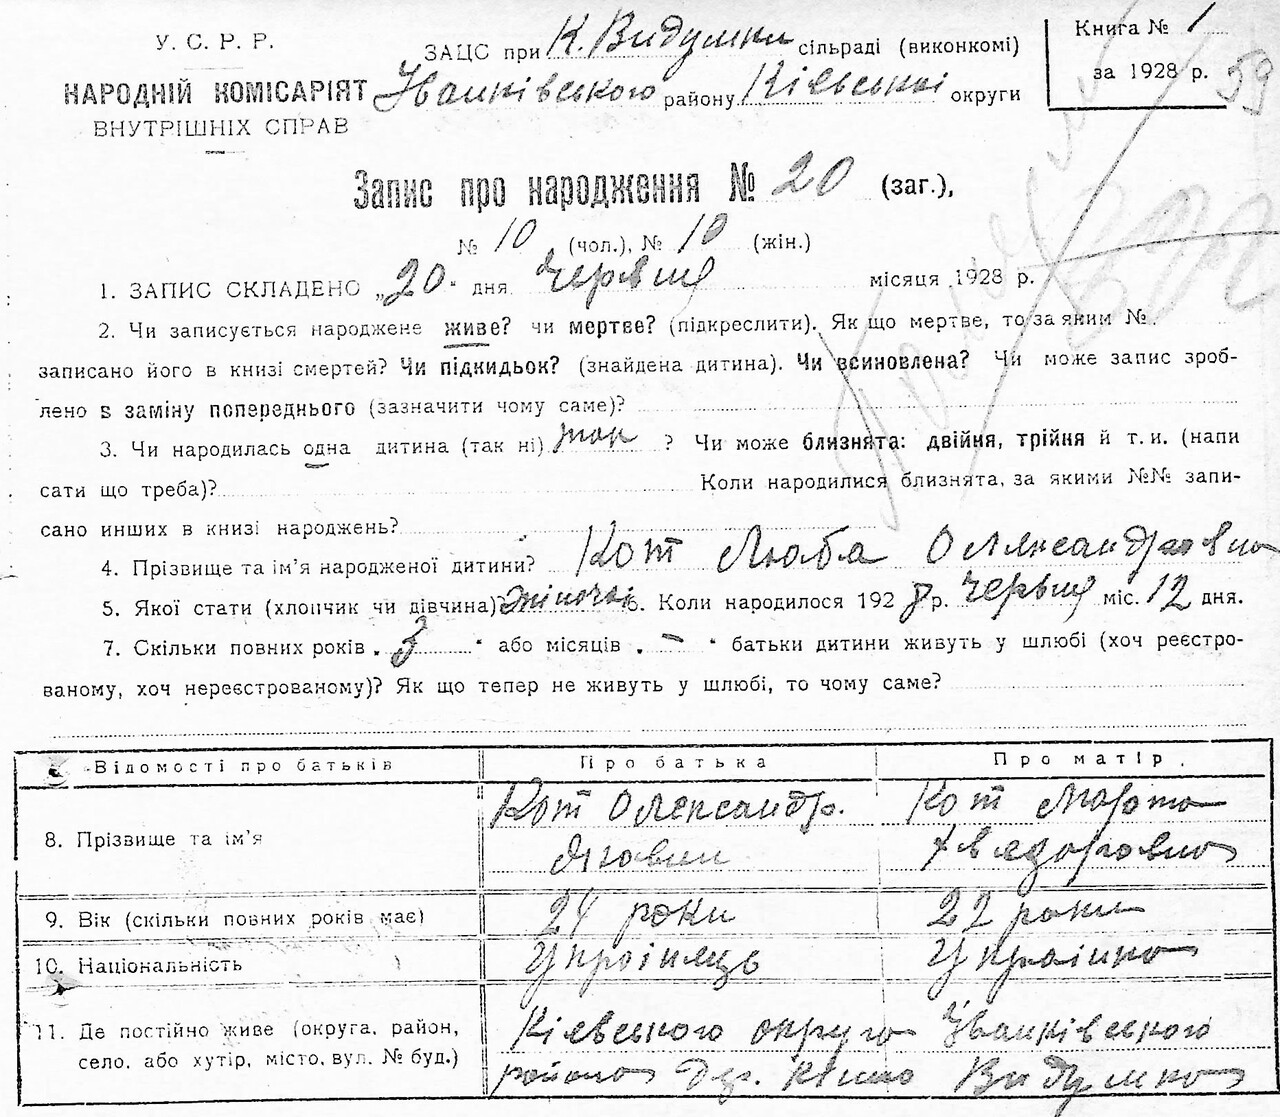 У. С. Р. Р.
НАРОДНІЙ КОМІСАРІЯТ
ВНУТРІШНІХ СПРАВ
ЗАЦС при К. Видумки сільраді (виконкомі)
Іванківського району Кіевської округи
Книга № 1
за 1928 р. 59
Запис про народження № 20 (заг.),
№ 10 (чол.), № 10 (жін.)
1. ЗАПИС СКЛАДЕНО „20" дня червня місяця 1928 р.
2. Чи записується народжене живе? чи мертве? (підкреслити). Як що мертве, то за яким №
записано його в книзі смертей? Чи підкидьок? (знайдена дитина). Чи всиновлена? Чи може запис зроб-
лено в заміну попереднього (зазначити чому саме)?
3. Чи народилась одна дитина (так ні) так ? Чи може близнята: двійня, трійня й т. и. (напи
сати що треба)? Коли народилися близнята, за якими №№ запи-
сано инших в книзі народжень?
4. Прізвище та ім'я народженої дитини? Кот Люба Олександровна
5. Якої стати (хлопчик чи дівчина)? жіночьі 6. Коли народилося 1928 р. червня міс. 12 дня.
7. Скільки повних років „ 3 " або місяців „ – " батьки дитини живуть у шлюбі (хоч реєстро-
ваному, хоч нереєстрованому)? Як що тепер не живуть у шлюбі, то чому саме?
Відомості про батьків Про батька Про матір
8. Прізвище та ім'я Кот Олександр. Кот Марта
9. Вік (скільки повних років має) 24 роки 22 роки
10. Національність Украінець Украінка
11. Де постійно живе (округа, район,
село, або хутір, місто, вул. № буд.)
Кіевського округа Іванківського
района Видумка